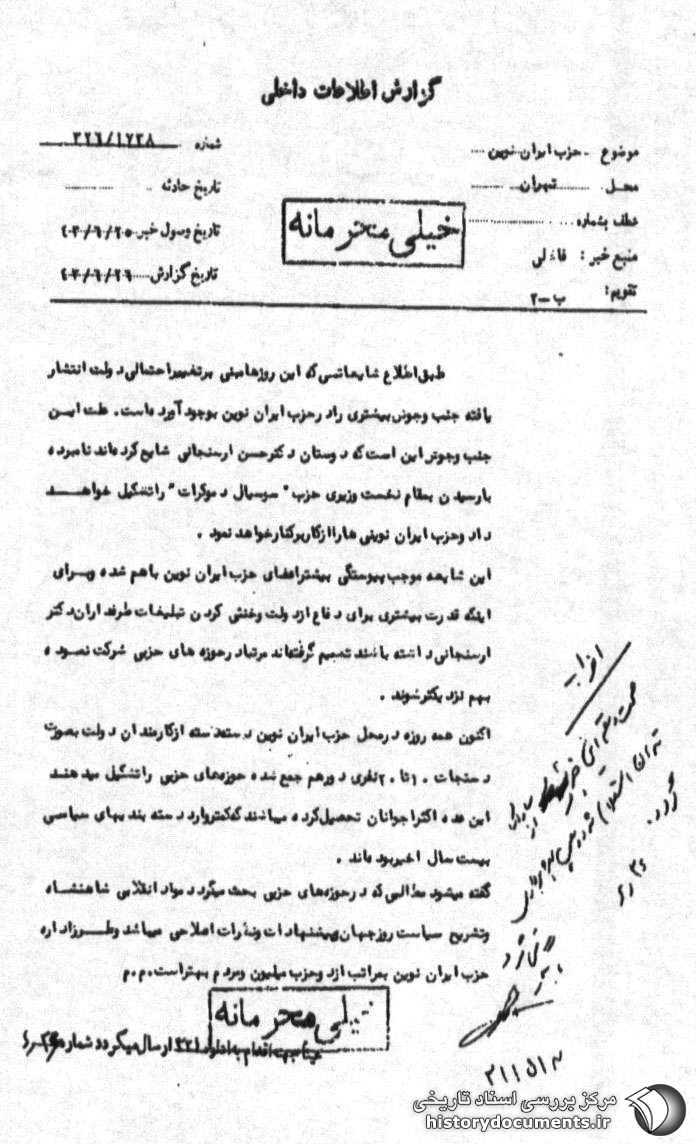 گزارش اطلاعات داخلی
موضوع ـ حزب ایران نوین
شماره ۳۲۶/۱۷۲۸
محل تهران
تاریخ حادثه
عطف بشماره
تاریخ وصول خبر
منبع خبر :
تاریخ گزارش
تقویم: ب ـ ۲
خیلی محرمانه
طبق اطلاع شایعاتی که این روزها مبنی بر تغییر احتمالی دولت انتشار
یافته جنب وجوش بیشتری را در حزب ایران نوین بوجود آورده است. علت ایـن
جنب وجوش این است که دوستان دکتر حسن ارسنجانی شایع کرده اند نامبرده
با رسیدن بمقام نخست وزیری حزب " سوسیال دموکرات " را تشکیل خواهـــد
داد وحزب ایران نوینی ها را از کار برکنار خواهد نمود .
این شایعه موجب پیوستگی بیشتر اعضای حزب ایران نوین با هم شده وبـرای
اینکه قدرت بیشتری برای دفاع از دولت وخنثی کردن تبلیغات طرفداران دکتر
ارسنجانی داشته باشند تصمیم گرفته اند مرتبا در حوزه های حزبی شرکت نمـوده
بهم نزدیکتر شوند .
اکنون همه روزه در محل حزب ایران نوین دسته دسته از کارمندان دولت بصورت
دستجات ۱۰ تا ۲۰ نفری دور هم جمع شده حوزه های حزبی را تشکیل میدهنـد
این عده اکثرا جوانان تحصیل کرده میباشند که کمتر وارد دسته بندیهای سیاسی
بیست سال اخیر بوده اند .
گفته میشود مطالبی که در حوزه های حزبی بحث میگردد مواد انقلابی شاهنشاه
وتشریح سیاست روز جهان وپیشنهادات ونظرات اصلاحی میباشد وطـرز اداره
حزب ایران نوین بمراتب از دو حزب ملیون ومردم بهتر است.م.م
خیلی محرمانه
جهت اقدام به اداره ۳۲۱ ارسال میگردد شماره
احزاب
تهران استعلام شود
مرکز بررسی اسناد تاریخی
historydocuments.ir